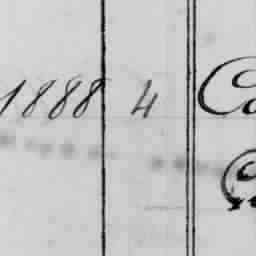 1888 4 Ca